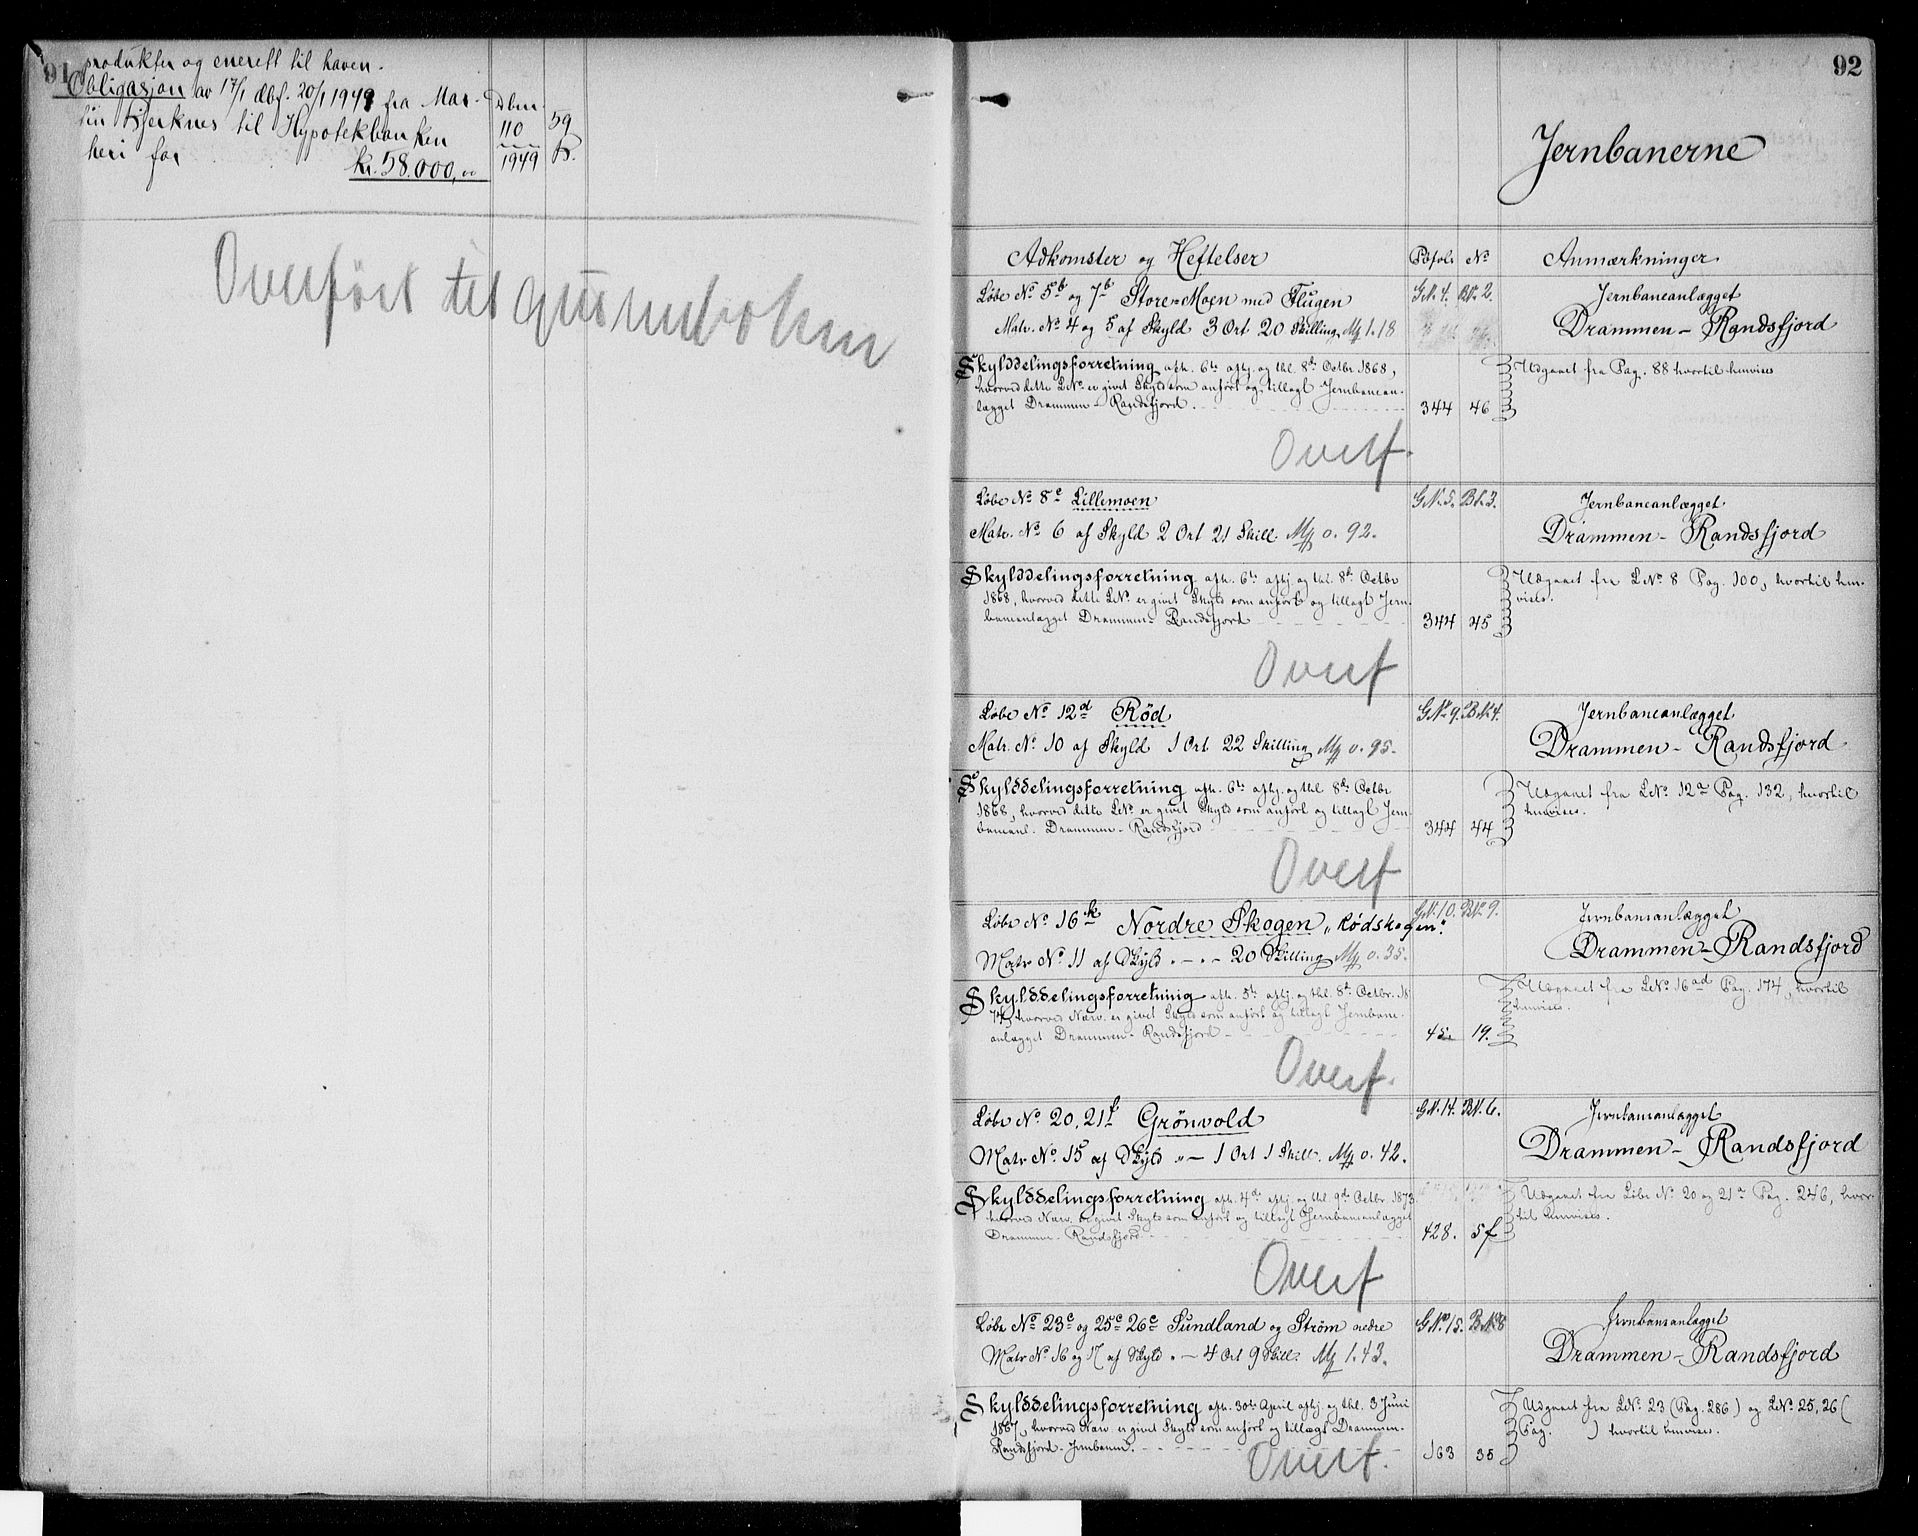 91
produkter og enerett til haven.
Obligasjon av 17/1 dbf. 20/1 1949 fra Mar-
tin Bjerknes til Hypotekbanken
heri for
kr. 58.000,00
Dbnr.
110
1949
59
Overført til grunnboken
92
Jernbanerne
Adkomster og Heftelser
Pbfol. No
Anmærkninger
Løbe No 5b og 7b Store-Moen med Flugen
G.N. 4. B.N. 2.
Jernbaneanlægget
Matr. No 4 og 5 af Skyld 3 Ort 20 Skilling M# 1.18
Drammen-Randsfjord
Skylddelingsforretning afh. 6te afhj. og thl. 8de Octbr. 1868,
Udgaaet fra Pag. 88 hvortil henvises
hvorved dette LNo er givet Skyld som anført og tillagt Jernbanean-
lægget Drammen-Randsfjord.
344 46
Overf.
Løbe No 8c Lillemoen
G.N. 5. B.N. 3.
Jernbaneanlægget
Matr. No 6 af Skyld 2 Ort 21 Skill M# 0.92.
Drammen-Randsfjord
Skylddelingsforretning afh. 6te afhj. og thl. 8de Octbr
Udgaaet fra LNo 8 Pag. 100, hvortil hen-
1868, hvorved dette LNo er givet Skyld som anført og tillagt Jern-
vises.
baneanlægget Drammen-Randsfjord
344 45
Overf
Løbe No 12d Rød
G.No 9. B.N. 4.
Jernbaneanlægget
Matr. No 10 af Skyld 1 Ort 22 Skilling M# 0.95.
Drammen-Randsfjord
Skylddelingsforretning afh. 6te afhj. og thl 8de Octbr
Udgaaet fra LNo 12a Pag. 132, hvortil
1868, hvorved dette LNo er givet Skyld som anført og tillagt Jern-
henvises.
baneanl. Drammen-Randsfjord
344 44
Overf
Løbe No 16k Nordre Skogen „Rødskogen“.
G.N. 10. B.No 9.
Jernbaneanlægget
Matr No 11 af Skyld " - " - 20 Skilling M# 0.35.
Drammen-Randsfjord
Skylddelingsforretning afh. 5te afhj. og thl. 8de Octbr. 18
Udgaaet fra LNo 16ad Pag. 174, hvortil
74, hvorved Nærv. er givet Skyld som anført og tillagt Jernbane-
henvises.
anlægget Drammen-Randsfjord
45 19.
Overf.
Løbe No 20, 21f Grönvold
G.N. 14. B.N. 6.
Jernbaneanlægget
Matr No 15 af Skyld " - 1 Ort 1 Skill. M# 0.42.
Drammen-Randsfjord
Skylddelingsforretning afh. 4de afhj. og thl. 9de Octbr. 1873
Udgaaet fra Løbe No 20 og 21a Pag. 246, hvor-
hvorved Nærv. er givet Skyld som anført og tillagt Jernbaneanlægget
til henvises.
Drammen-Randsfjord
428. 5f
Overf
Løbe No 23c og 25c 26c Sundland og Strøm nedre
G.No 15. B.No 8
Jernbaneanlægget
Matr No 16 og 17 af Skyld " - 4 Ort 9 Skill. M# 1.43.
Drammen-Randsfjord
Skylddelingsforretning afh. 30te April afhj. og thl. 3 Juni
Udgaaet fra LNo 23 (Pag. 286) og LNo 25, 26 (
1867, hvorved Nærv. er givet Skyld som anført og tillagt Drammen-
Pag. ) hvortil henvises.
Randsfjord-Jernbanen.
163 35
Overf.